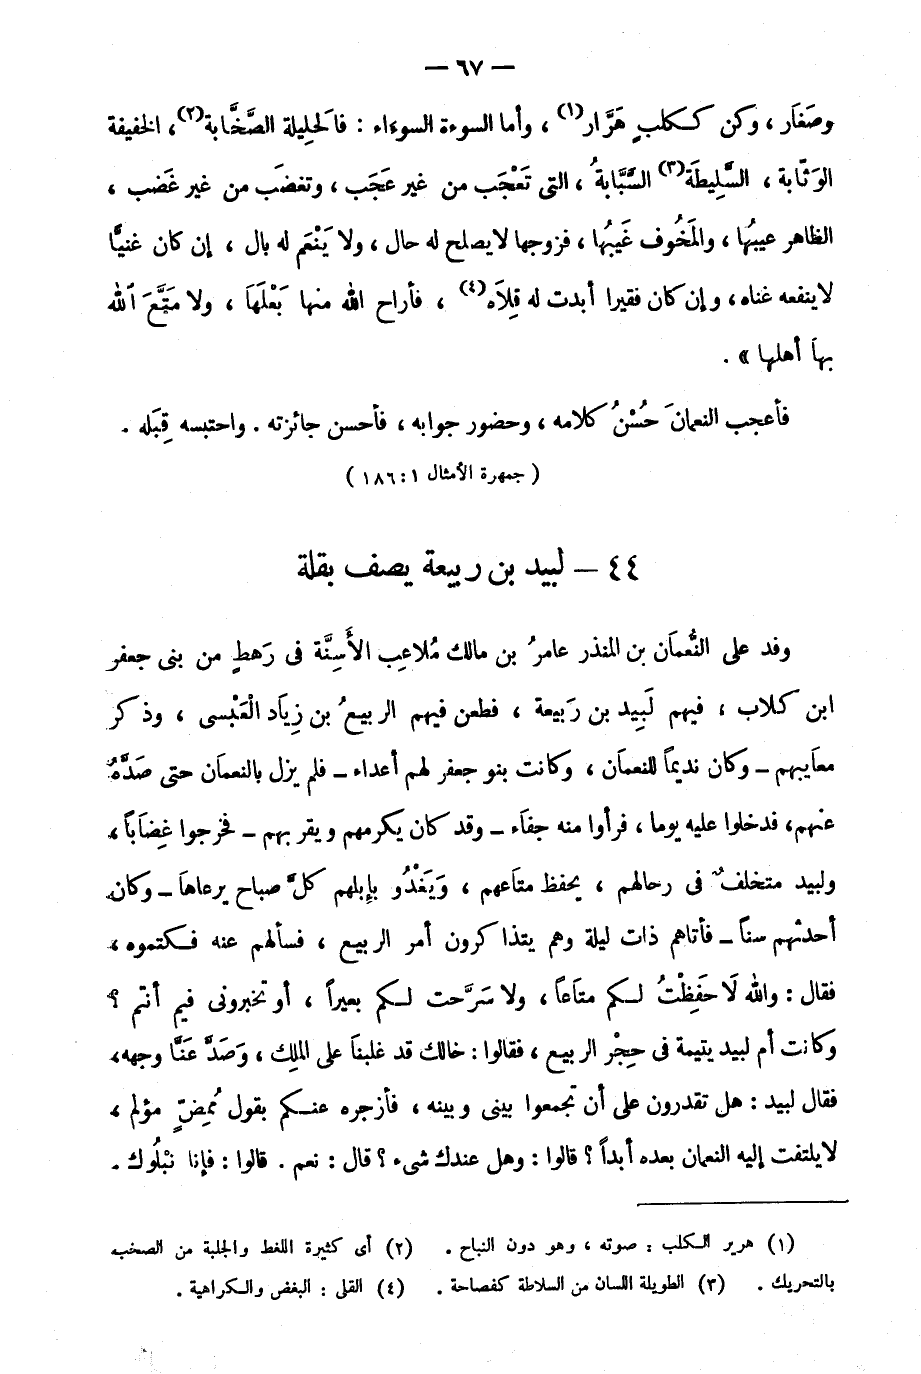 — ٦٧ —
وصَغَار ، وكن ككلبٍ هَرَّار(١) ، وأما السوءة السوءاء : فالحليلة الصَّخَّابة(٢)، الخفيفة
الوثّابة ، السَّلِيطَة(٣) السَّبَّابةُ ، التى تَعْجَب من غير عَجَب ، وتغضَب من غير غَضب ،
الظاهر عيبُها ، والمَخُوف غَيبُها ، فزوجها لا يصلح له حال ، ولا يَنْعَم له بال ، إن كان غنيًّا
لا ينفعه غناه ، وإن كان فقيرا أبدت له قِلاَه(٤) ، فأراح الله منها بَعْلَهَا ، ولا مَتَّعَ الله
بها أهلها » .
فأعجب النعمانَ حُسْنُ كلامه ، وحضور جوابه ، فأحسن جائزته . واحتبسه قِبَله .
( جمهرة الأمثال ١ : ١٨٦ )
٤٤ – لبيد بن ربيعة يصف بقلة
وفد على النُّعمان بن المنذر عامرُ بن مالك مُلاعِب الأَسِنَّة فى رَهطٍ من بنى جعفر
ابن كلاب ، فيهم لَبِيد بن رَبيعة ، فطعن فيهم الربيعُ بن زِيَاد الْعَبْسى ، وذكر
معايبهم – وكان نديماً للنعمان ، وكانت بنو جعفر لهم أعداء – فلم يزل بالنعمان حتى صَدَّهُ
عنهم، فدخلوا عليه يوما ، فرأوا منه جفَاء – وقد كان يكرمهم ويقربهم – فخرجوا غِضَاباً ،
ولبيد متخلفٌ فى رحالهم ، يحفظ متاعهم ، وَيَغْدُو بإبلهم كلَّ صباح يرعاها – وكان
أحدثهم سناً – فأتاهم ذات ليلة وهم يتذاكرون أمر الربيع ، فسألهم عنه فكتموه ،
فقال : والله لَا حَفِظْتُ لكم متاعاً ، ولا سَرَّحت لكم بعيراً ، أو تخبرونى فيم أنتم ؟
وكانت أم لبيد يتيمة فى حِجْر الربيع ، فقالوا : خالك قد غلبنا على الملِك ، وَصَدَّ عَنَّا وجهه،
فقال لبيد : هل تقدرون على أن تجمعوا بينى وبينه ، فأزجره عنكم بقول مُمِضٍّ مؤلم ،
لا يلتفت إليه النعمان بعده أبداً ؟ قالوا : وهل عندك شىء ؟ قال : نعم . قالوا : فإنا نَبْلُوك .
(١) هرير الكلب : صوته ، وهو دون النباح . (٢) أى كثيرة اللغط والجلبة من الصخب
بالتحريك . (٣) الطويلة اللسان من السلاطة كفصاحة . (٤) القلى : البغض والكراهية .